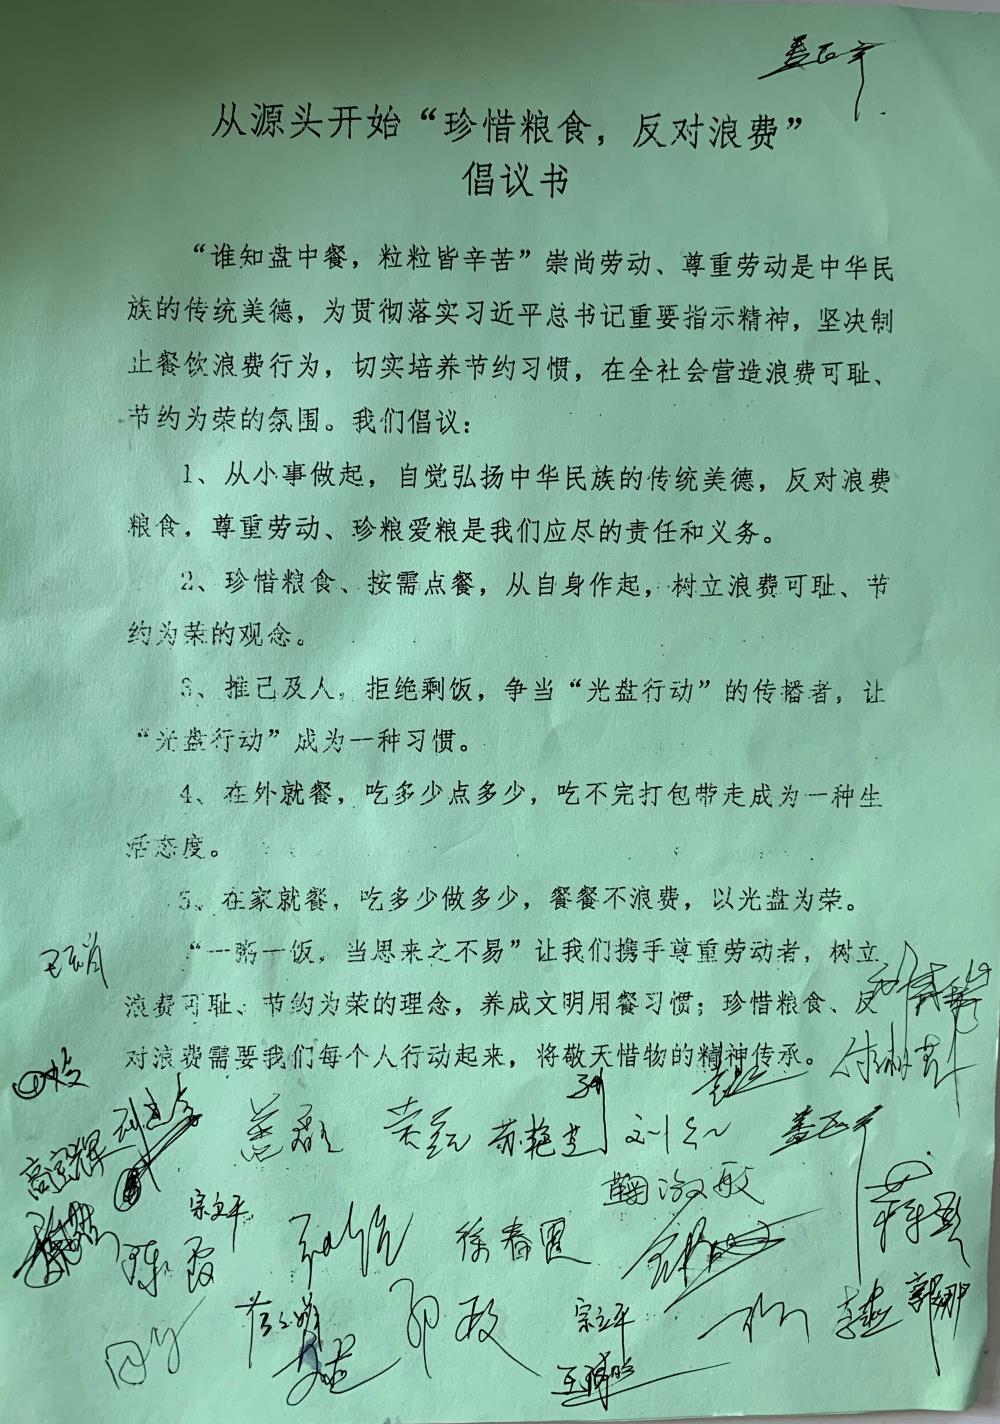 从源头开始“珍惜粮食，反对浪费”
倡议书
“谁知盘中餐，粒粒皆辛苦”崇尚劳动、尊重劳动是中华民
族的传统美德，为贯彻落实习近平总书记重要指示精神，坚决制
止餐饮浪费行为，切实培养节约习惯，在全社会营造浪费可耻、
节约为荣的氛围。我们倡议：
1、从小事做起，自觉弘扬中华民族的传统美德，反对浪费
粮食，尊重劳动、珍粮爱粮是我们应尽的责任和义务。
2、珍惜粮食、按需点餐，从自身作起，树立浪费可耻、节
约为荣的观念。
3、推己及人，拒绝剩饭，争当“光盘行动”的传播者，让
“光盘行动”成为一种习惯。
4、在外就餐，吃多少点多少，吃不完打包带走成为一种生
活态度。
5、在家就餐，吃多少做多少，餐餐不浪费，以光盘为荣。
“一粥一饭，当思来之不易”让我们携手尊重劳动者，树立
浪费可耻、节约为荣的理念，养成文明用餐习惯；珍惜粮食、反
对浪费需要我们每个人行动起来，将敬天惜物的精神传承。
苏艳芝
高宝辉
宗立平
徐春
陈霞
宗立平
郭娜